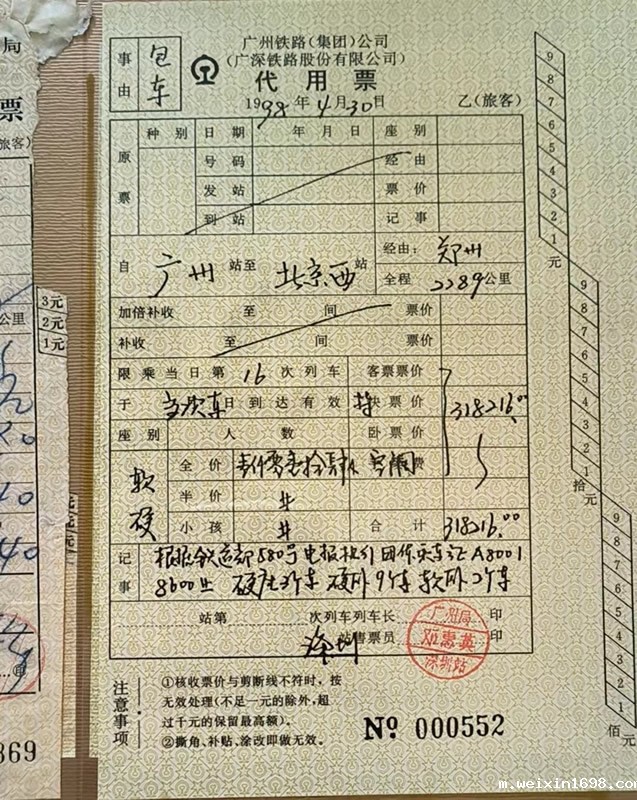 广州铁路(集团)公司
(广深铁路股份有限公司)
代用票
事由 包车
1998年4月30日
乙(旅客)
原票
种别 日期 年月日 座别
号码 经由
发站 票价
到站 记事
自 广州 站至 北京西 站
经由: 郑州
全程 2289公里
加倍补收 至 间 票价
补收 至 间 票价
限乘当日第16次列车 客票票价
于 当次车 日到达有效 特快票价 318216.00
座别 人数 卧票价
软硬
全价 空调费
半价
小孩 合计 318216.00
记事
根据铁运部580号电报
A8001
硬卧9车 软卧2车
站第 次列车列车长 印
深圳 站售票员 印
广州局
深圳站
注意事项
①核收票价与剪断线不符时,按
无效处理(不足一元的除外,超
过千元的保留最高额)。
②撕角、补贴、涂改即做无效。
№ 000552
9
8
7
6
5
4
3
2
1
元
9
8
7
6
5
4
3
2
1
拾元
9
8
7
6
5
4
3
2
1
佰元
局
票
旅客)
3元
2元
1元
公里
元
印
869
m.weixin1698.com